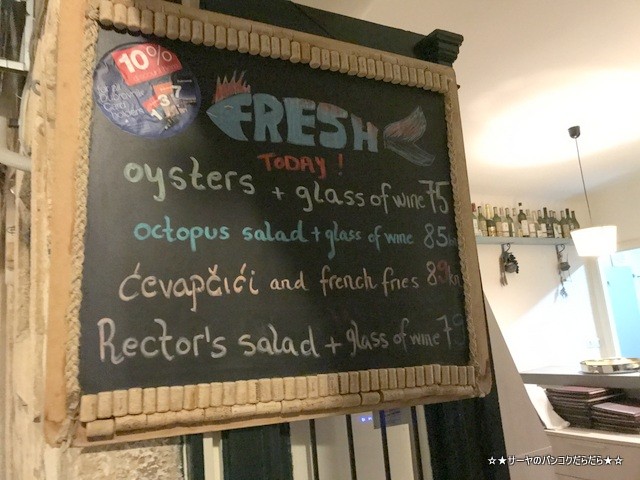 10%
FRESH
TODAY !
oysters + glass of wine 75
octopus salad + glass of wine 85
ćevapčići and french fries 89kn
Rector's salad + glass of wine 79
☆★サーヤのバンコクだらだら★☆